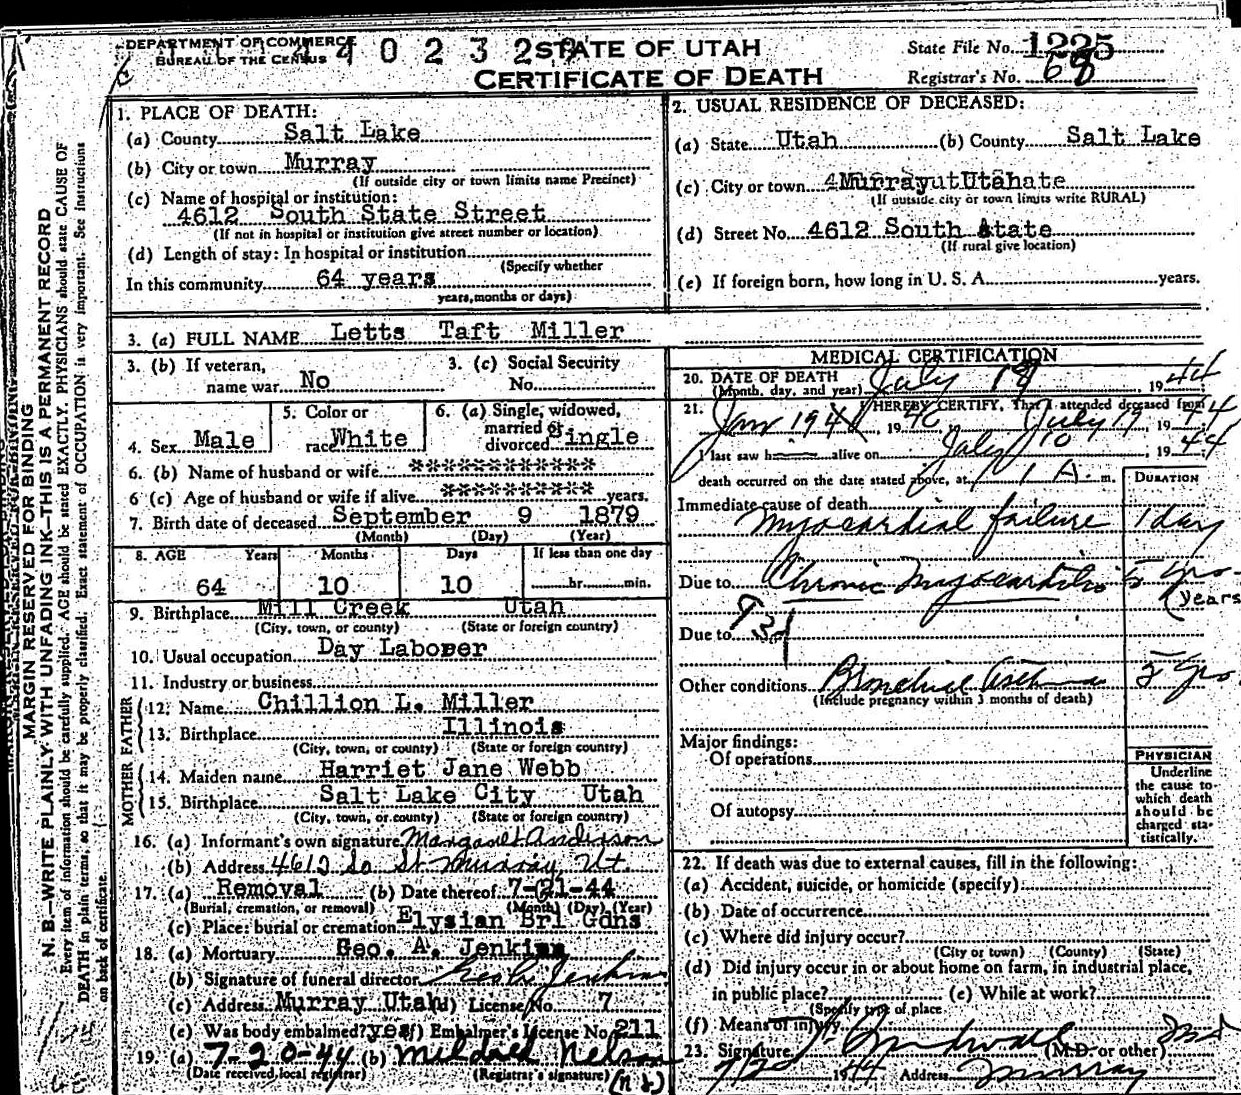 DEPARTMENT OF COMMERCE
BUREAU OF THE CENSUS
STATE OF UTAH
CERTIFICATE OF DEATH
State File No. 1225
Registrar's No. 68
MARGIN RESERVED FOR BINDING
N. B.—WRITE PLAINLY, WITH UNFADING INK—THIS IS A PERMANENT RECORD
Every item of information should be carefully supplied. AGE should be stated EXACTLY. PHYSICIANS should state CAUSE OF
DEATH in plain terms, so that it may be properly classified. Exact statement of OCCUPATION is very important. See instructions
on back of certificate.
1. PLACE OF DEATH:
(a) County Salt Lake
(b) City or town Murray
(If outside city or town limits name Precinct)
(c) Name of hospital or institution:
4612 South State Street
(If not in hospital or institution give street number or location)
(d) Length of stay: In hospital or institution
(Specify whether
In this community 64 years
years, months or days)
2. USUAL RESIDENCE OF DECEASED:
(a) State Utah (b) County Salt Lake
(c) City or town Murray Utah
(If outside city or town limits write RURAL)
(d) Street No. 4612 South State
(If rural give location)
(e) If foreign born, how long in U. S. A. years.
3. (a) FULL NAME Letts Taft Miller
3. (b) If veteran, name war No
3. (c) Social Security No.
4. Sex Male
5. Color or race White
6. (a) Single, widowed, married or divorced Single
6. (b) Name of husband or wife ************
6 (c) Age of husband or wife if alive ********** years.
7. Birth date of deceased September 9 1879
(Month) (Day) (Year)
8. AGE Years Months Days If less than one day
64 10 10 hr. min.
9. Birthplace Mill Creek Utah
(City, town, or county) (State or foreign country)
10. Usual occupation Day Laborer
11. Industry or business
FATHER
12. Name Chillion L. Miller
13. Birthplace Illinois
(City, town, or county) (State or foreign country)
MOTHER
14. Maiden name Harriet Jane Webb
15. Birthplace Salt Lake City Utah
(City, town, or county) (State or foreign country)
16. (a) Informant's own signature Margaret Anderson
(b) Address 4612 So St. Murray, Ut.
17. (a) Removal (b) Date thereof 7-21-44
(Burial, cremation, or removal) (Month) (Day) (Year)
(c) Place: burial or cremation Elysian Brl Gdns
18. (a) Mortuary Geo. A. Jenkins
(b) Signature of funeral director Geo A Jenkins
(c) Address Murray Utah (d) License No. 7
(e) Was body embalmed? yes (f) Embalmer's License No. 211
19. (a) 7-20-44 (b) Mildred Nelson
(Date received local registrar) (Registrar's signature)
MEDICAL CERTIFICATION
20. DATE OF DEATH
(Month, day, and year) July 19, 1944
21. I HEREBY CERTIFY, That I attended deceased from
Jan 1940, July 19 1944
I last saw h alive on July 10 1944
death occurred on the date stated above, at 1 A. m.
DURATION
Immediate cause of death
Myocardial failure 1 day
Due to Chronic Myocarditis 5 yrs.
(years
Due to
Other conditions Bronchial Asthma 5 yrs.
(Include pregnancy within 3 months of death)
Major findings:
Of operations
Of autopsy
PHYSICIAN
Underline
the cause to
which death
should be
charged sta-
tistically.
22. If death was due to external causes, fill in the following:
(a) Accident, suicide, or homicide (specify)
(b) Date of occurrence
(c) Where did injury occur?
(City or town) (County) (State)
(d) Did injury occur in or about home on farm, in industrial place,
in public place? (e) While at work?
(Specify type of place
(f) Means of injury
23. Signature (M.D. or other) MD
7/20 1944 Address Murray